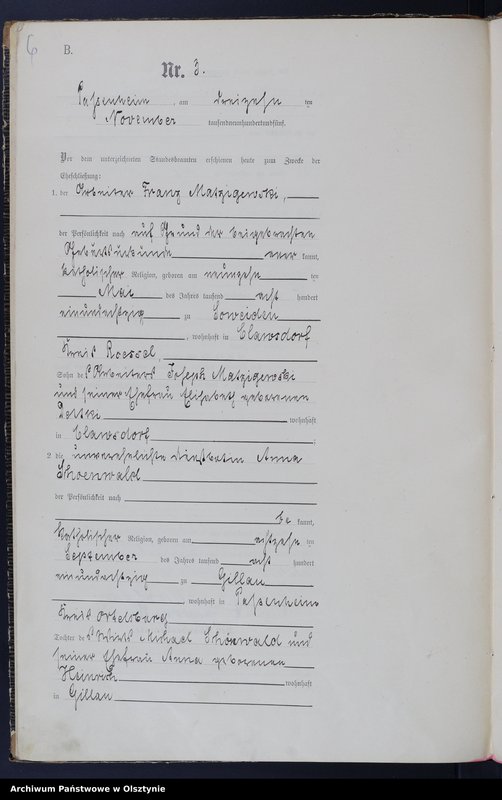 6
B.
Nr. 3.
Passenheim, am dreizehn ten
November tausendneunhundertundfünf.
Vor dem unterzeichneten Standesbeamten erschienen heute zum Zwecke der
Eheschließung:
1. der Arbeiter Franz Matzigewski,
der Persönlichkeit nach auf Grund der beigebrachten
Geburtsurkunde aner kannt,
katholischer Religion, geboren am neunzehn ten
Mai des Jahres tausend acht hundert
einundachtzig zu Loweiden
, wohnhaft in Clawsdorf,
Kreis Roessel,
Sohn des Arbeiters Joseph Matzigewski
und seiner Ehefrau Elisabeth geborenen
wohnhaft
in Clawsdorf;
2. die unverehelichte Dienstbotin Anna
Schoenwald
der Persönlichkeit nach
be kannt,
katholischer Religion, geboren am achtzehn ten
September des Jahres tausend acht hundert
einundachtzig zu Gillau
, wohnhaft in Passenheim
Kreis Ortelsburg,
Tochter des Wirts Michael Schönwald und
seiner Ehefrau Anna geborenen
Heinrich wohnhaft
in Gillau
Archiwum Państwowe w Olsztynie